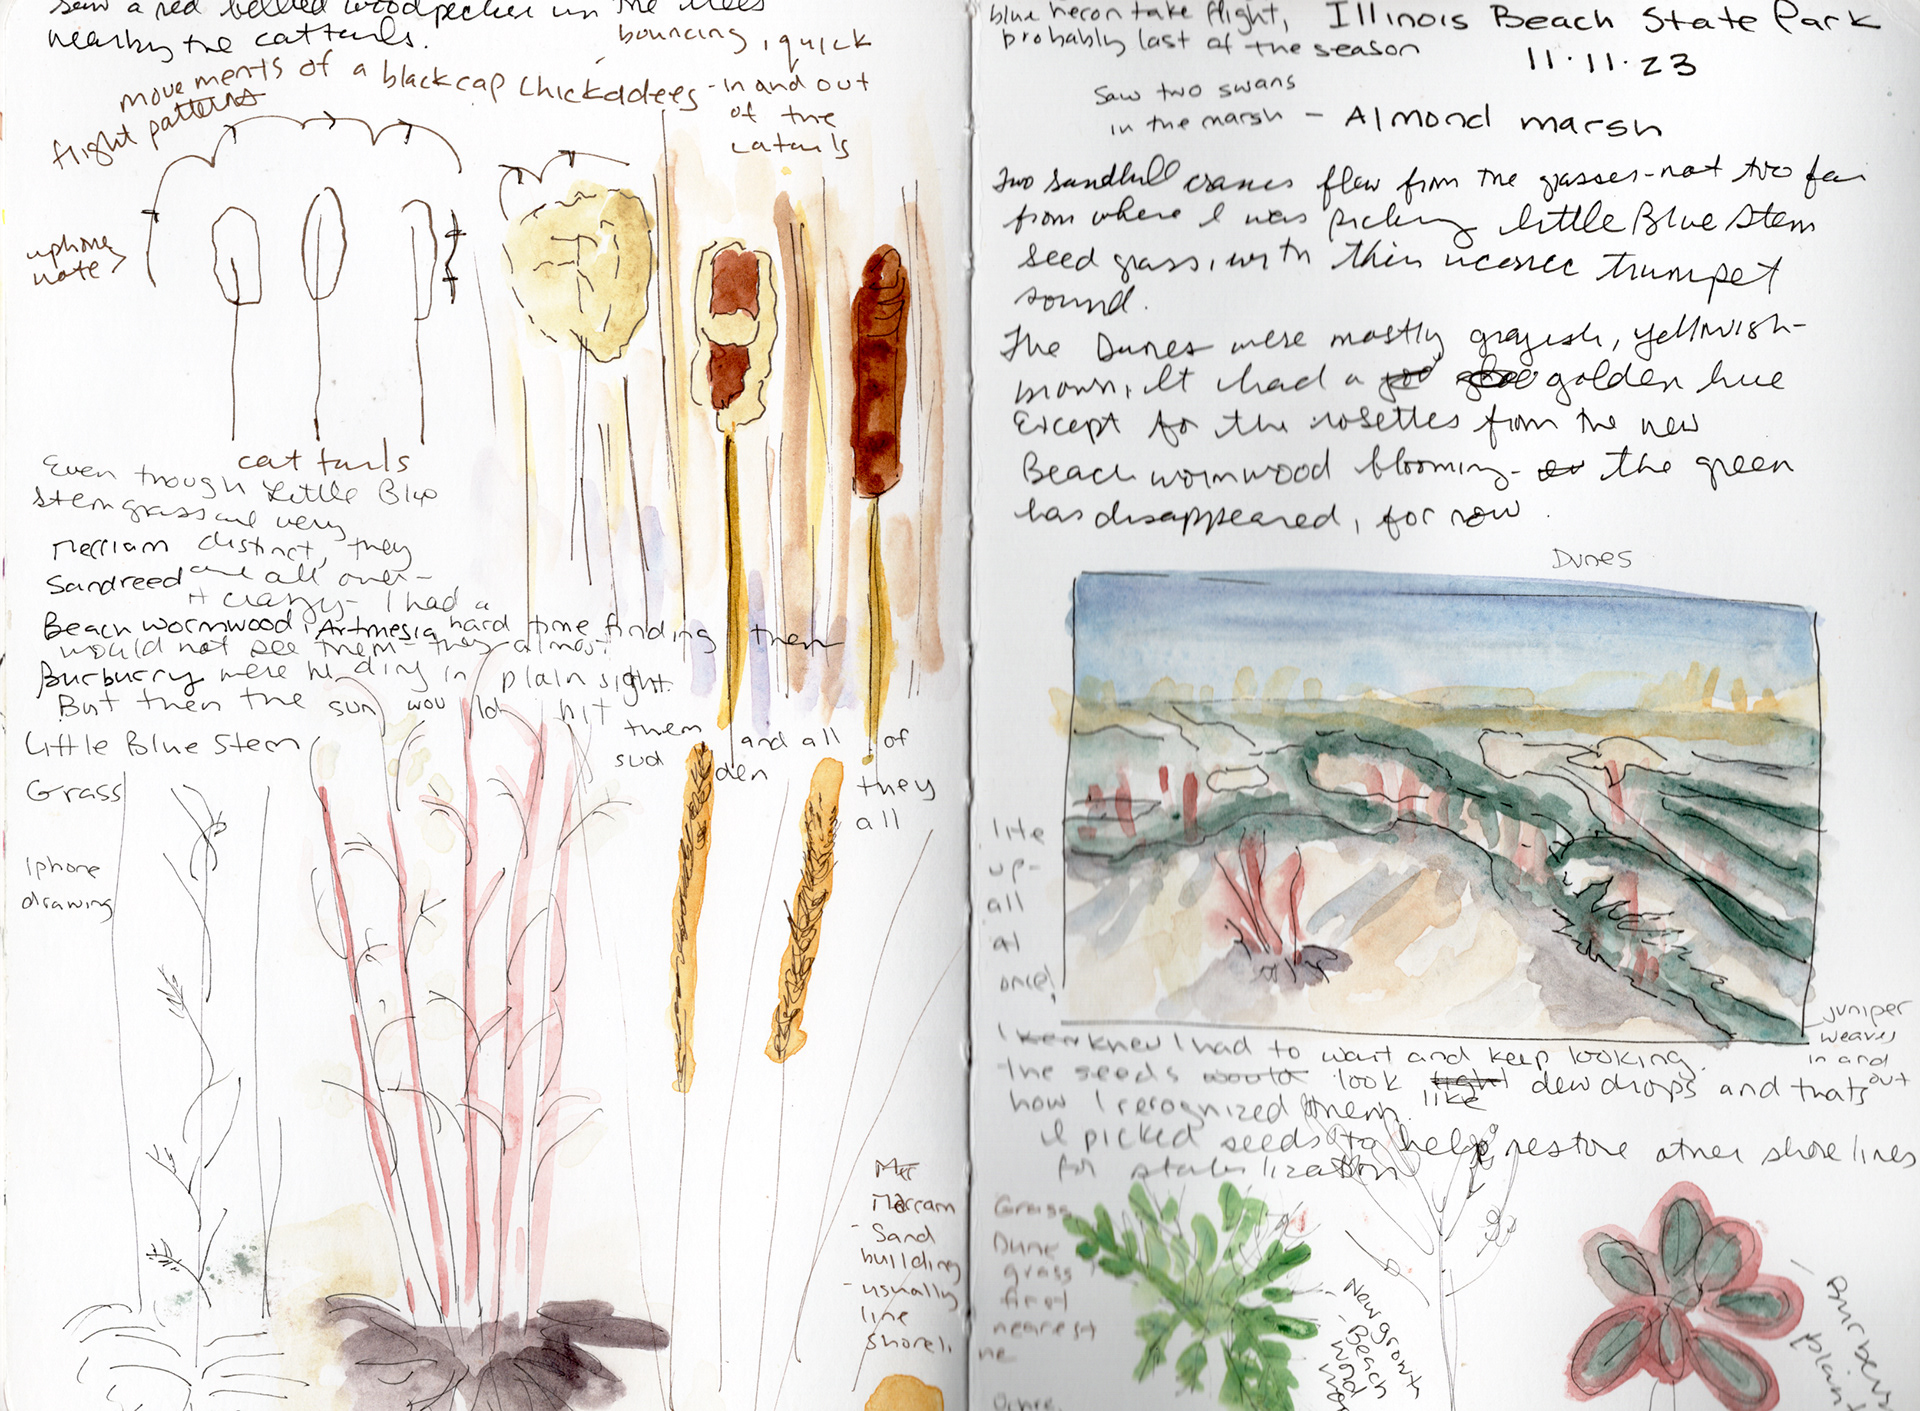 saw a red bellied woodpecker in the trees
nearby the cattails.
bouncing, quick
movements of a blackcap chickadees - in and out
flight patterns
of the
catails
iphone
note >
cattails
Even though Little Blue
Stem grass are very
Merriam distinct, they
Sandreed are all over-
+ crazy - I had a
Beach wormwood, Artmesia hard time finding them
would not see them - they almost
Burburry were hiding in plain sight.
But then the sun would hit
them and all of
sudden they
all
Little Blue Stem
Grass
Iphone
drawing
Marram
- Sand
building
- usually
line
shoreli
blue heron take flight,
probably last of the season
Illinois Beach State Park
11.11.23
Saw two swans
in the marsh - Almond marsh
Two Sandhill cranes flew from the grasses - not too far
from where I was picking little Blue Stem
Seed grass, with their trumpet
sound.
The Dunes were mostly grayish, yellowish-
brown, It had a golden hue
Except for the rosettes from the new
Beach wormwood blooming - the green
has disappeared, for now.
Dunes
lite
up-
all
at
once!
juniper
weaves
in and
out
I knew I had to wait and keep looking.
the seeds would look like dewdrops and thats
how I recognized them.
I picked seeds to help restore other shorelines
for stabilization
Grass
Dune
grass
first
nearest
ne
Ochre
- New growth
- Beach
- Burberry
plant